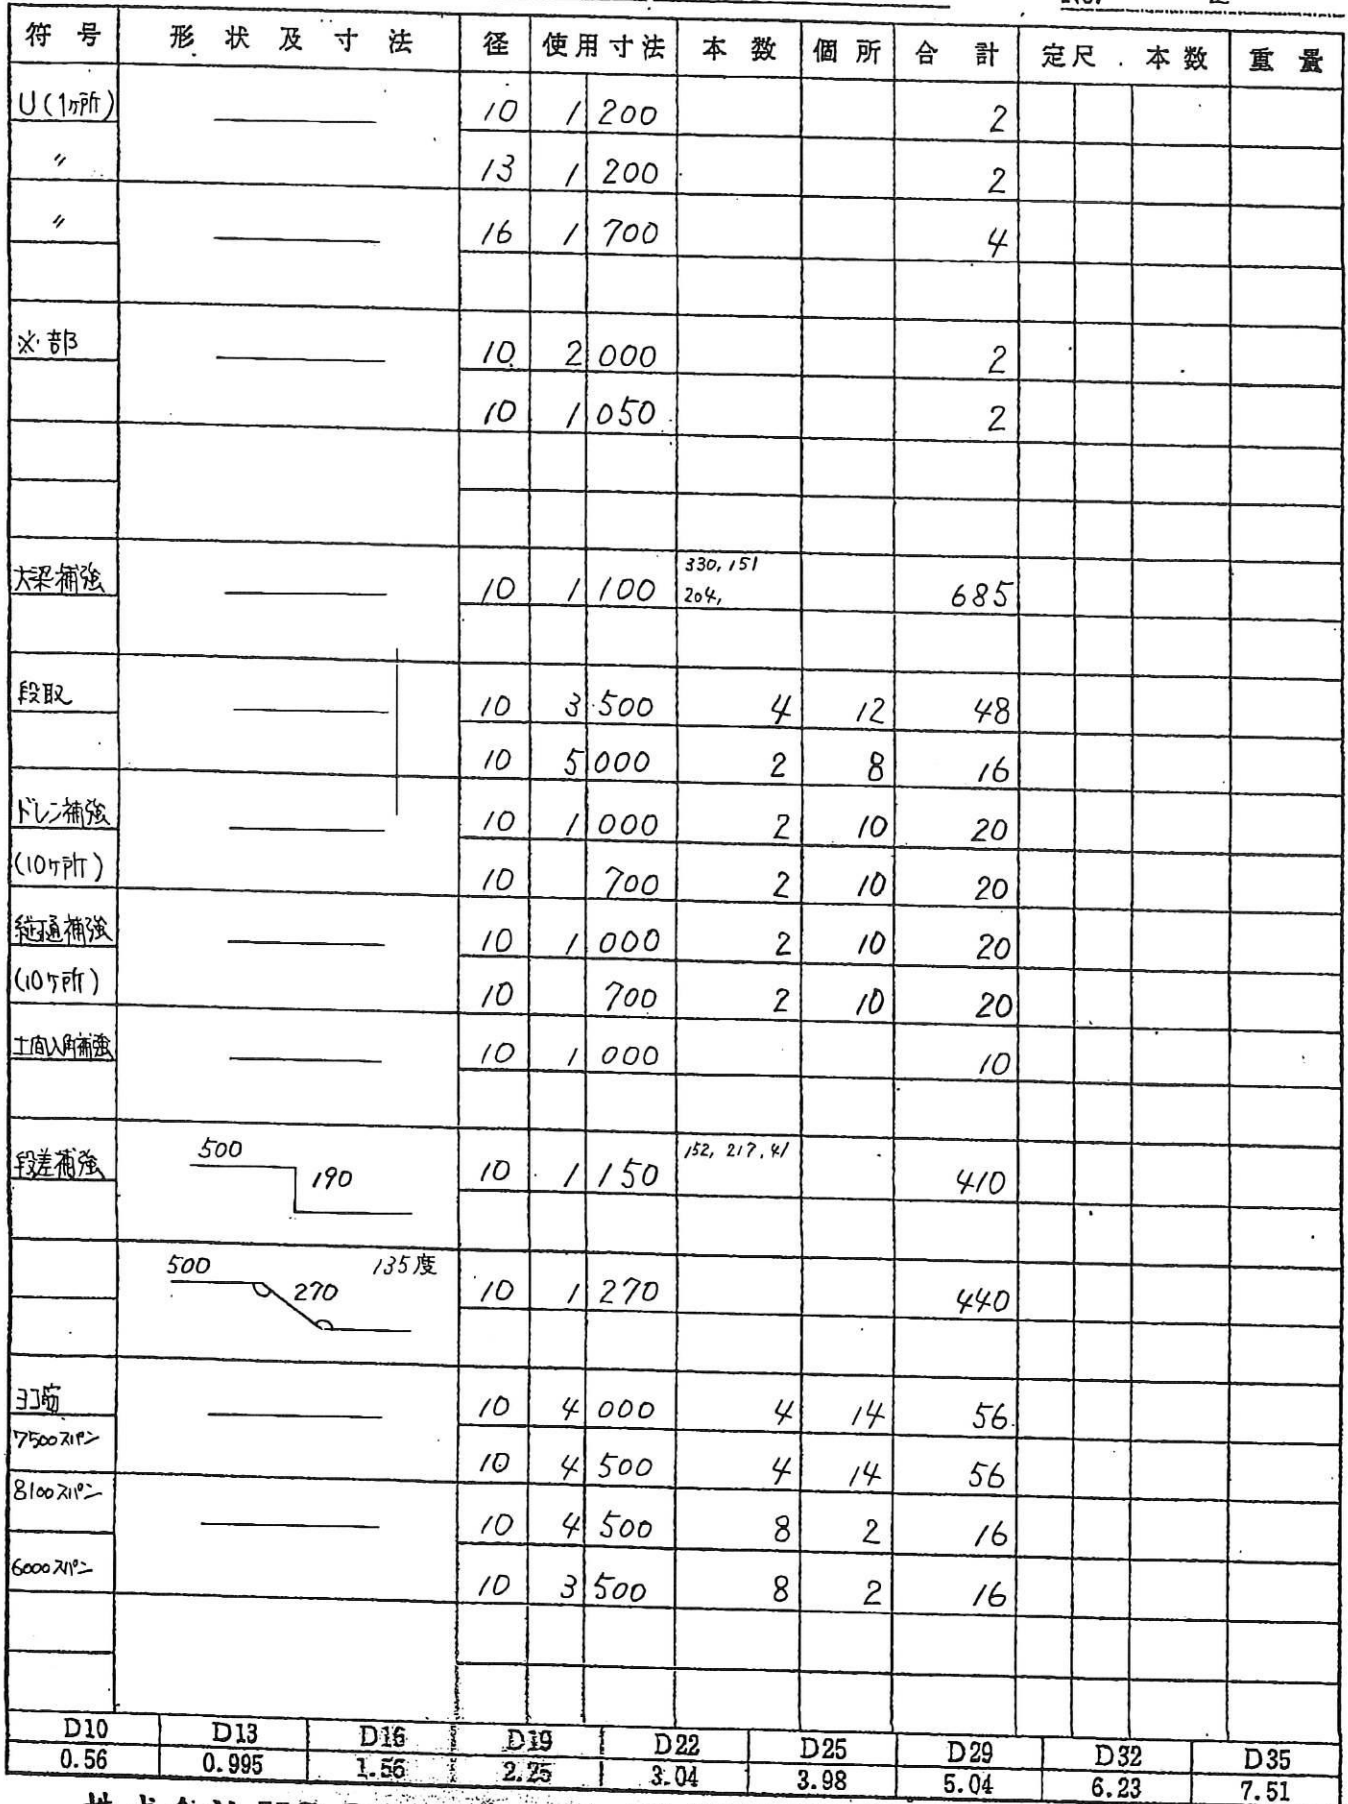 符号 形状及寸法 径 使用寸法 本数 個所 合計 定尺.本数 重量
U(1ヶ所) 10 1 200 2
〃 13 1 200 2
〃 16 1 700 4
※部 10 2 000 2
10 1 050 2
330, 151
大梁補強 10 1 100 204, 685
段取 10 3 500 4 12 48
10 5 000 2 8 16
ドレン補強 10 1 000 2 10 20
(10ヶ所) 10 700 2 10 20
補強 10 1 000 2 10 20
(10ヶ所) 10 700 2 10 20
土間入角補強 10 1 000 10
500 152, 217, 41
段差補強 190 10 1 150 410
500 135度
270 10 1 270 440
ヨコ筋 10 4 000 4 14 56
7500スパン
10 4 500 4 14 56
8100スパン
10 4 500 8 2 16
6000スパン
10 3 500 8 2 16
D10 D13 D16 D19 D22 D25 D29 D32 D35
0.56 0.995 1.56 2.25 3.04 3.98 5.04 6.23 7.51